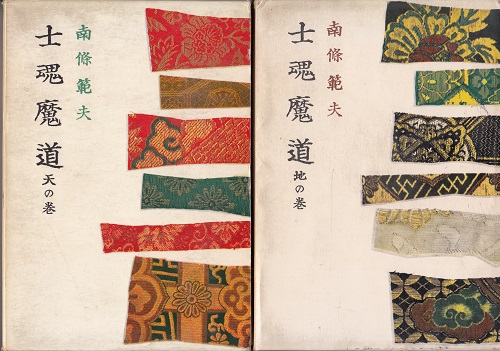 南條範夫
士魂魔道
天の巻
南條範夫
士魂魔道
地の巻